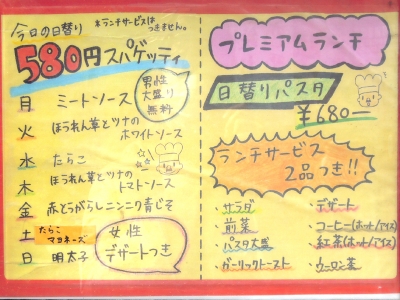 今日の日替り
*ランチサービスは
つきません。
580円スパゲッティ
男性
大盛り
無料
月 ミートソース
火 ほうれん草とツナの
ホワイトソース
水 たらこ
木 ほうれん草とツナの
トマトソース
金 赤とうがらしニンニク青じそ
土 たらこ
マヨネーズ
日 明太子
女性
デザートつき
プレミアムランチ
日替りパスタ
¥680-
ランチサービス
2品つき!!
・サラダ
・前菜
・パスタ大盛
・ガーリックトースト
・デザート
・コーヒー(ホット/アイス)
・紅茶(ホット/アイス)
・ウーロン茶